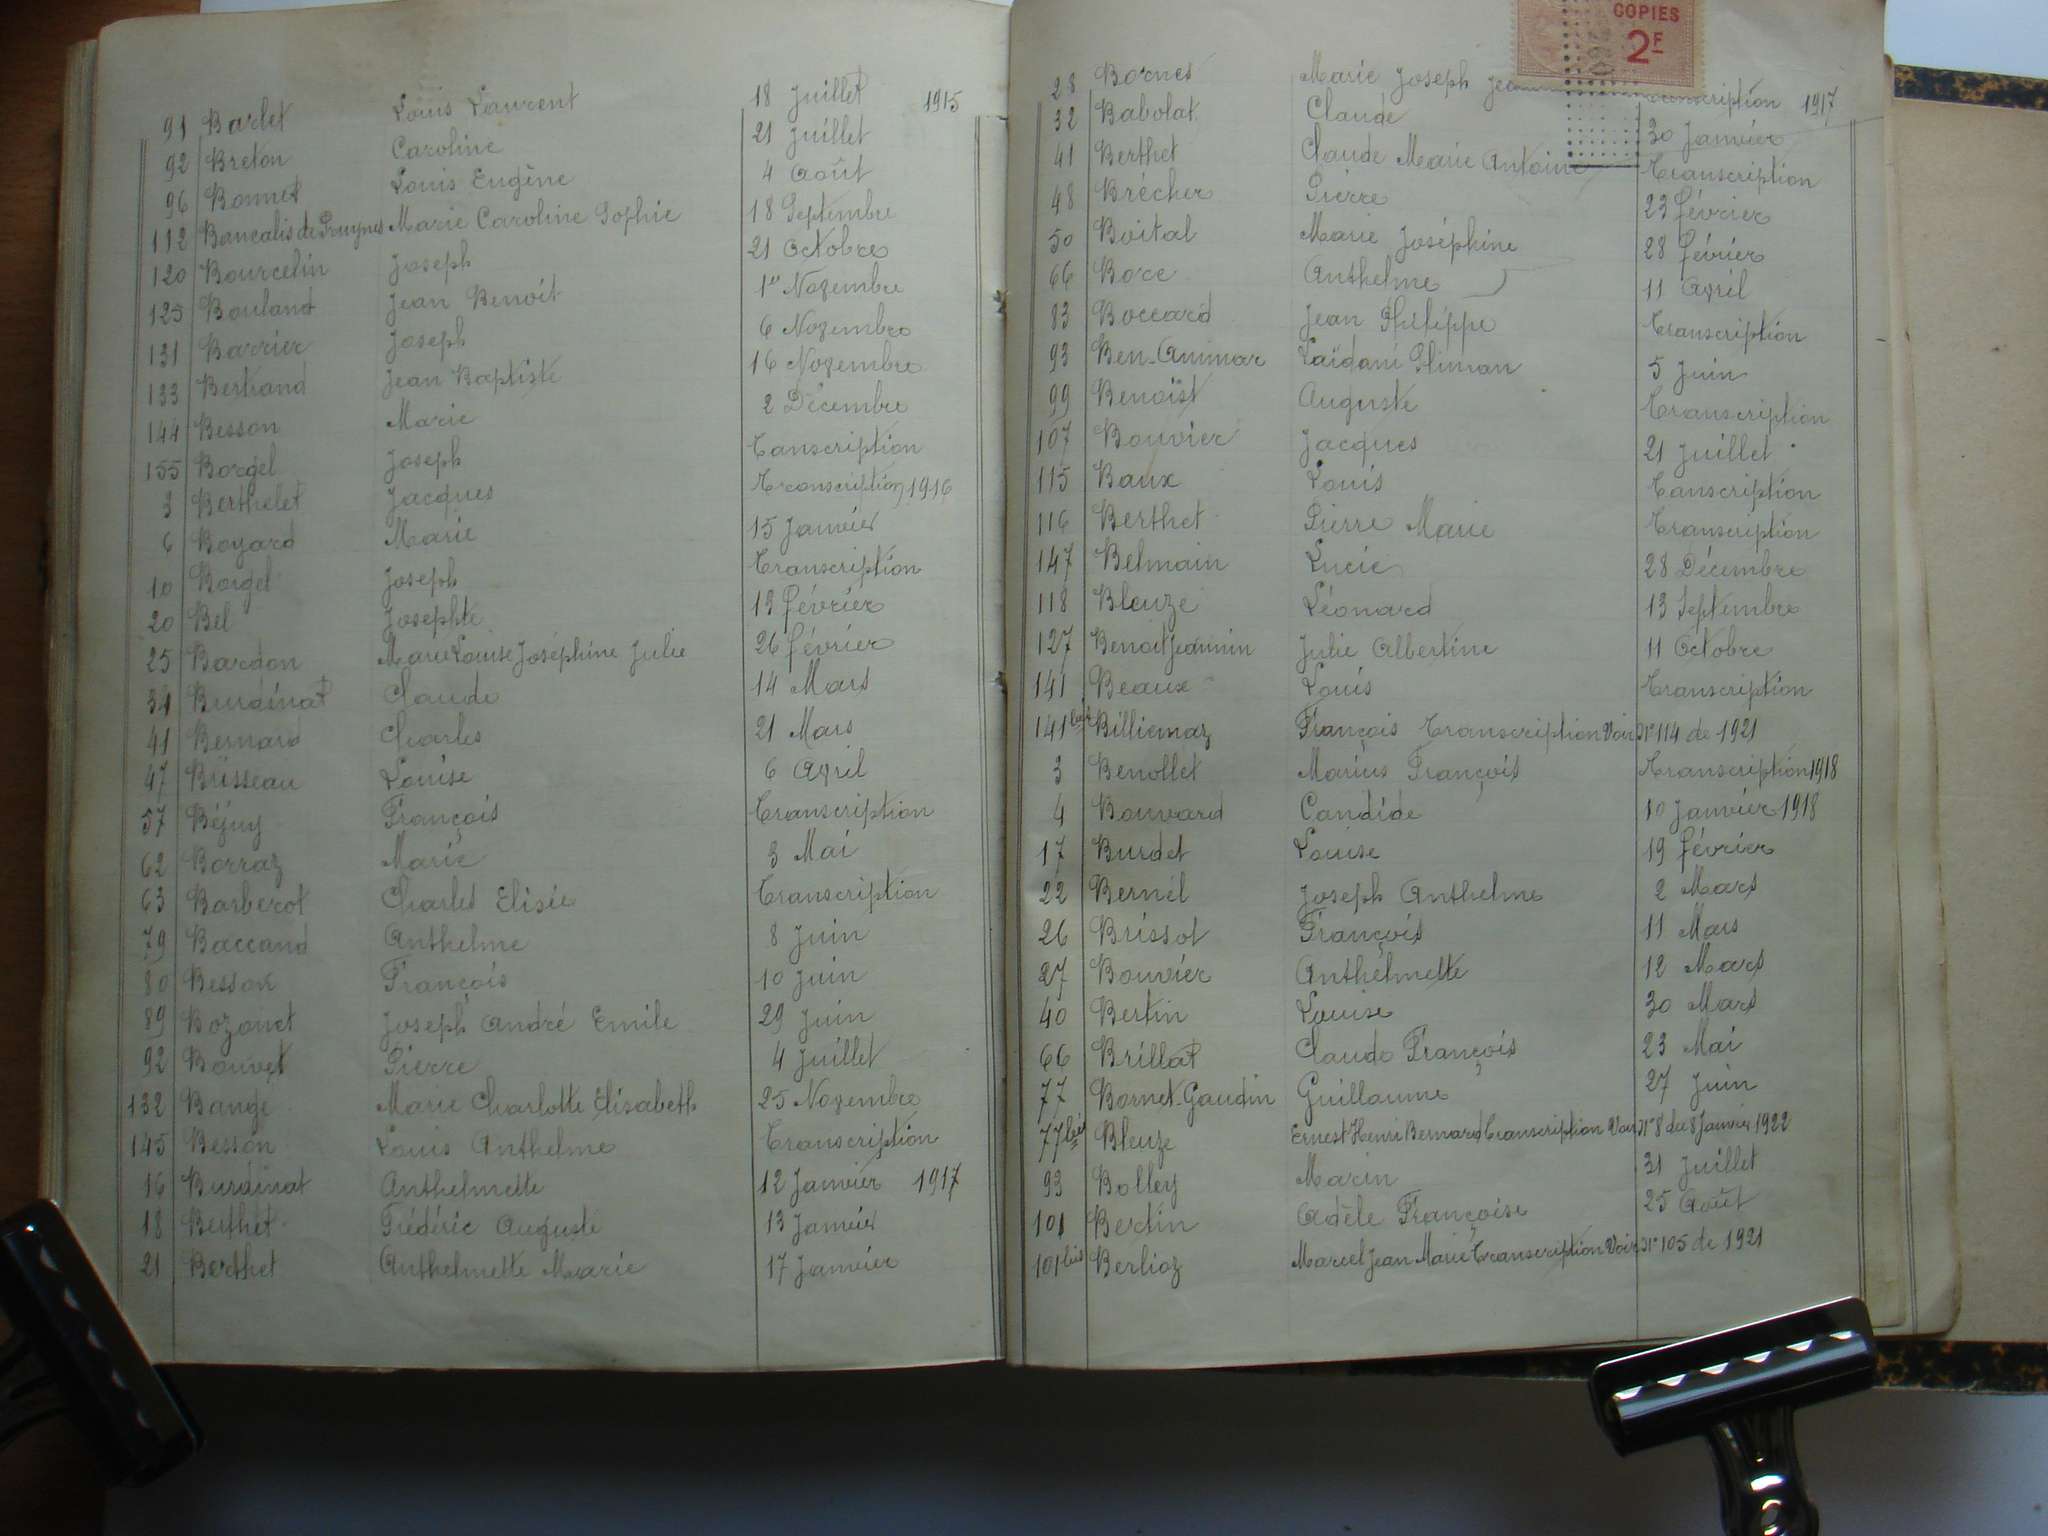 91 Barlet Louis Laurent 18 Juillet 1915
92 Breton Caroline 21 Juillet
96 Bonnet Louis Eugène 4 Août
112 Bancalis de Pruynes Marie Caroline Sophie 18 Septembre
120 Bourcelin Joseph 21 Octobre
125 Bouland Jean Benoit 1er Novembre
131 Barrier Joseph 6 Novembre
133 Bertrand Jean Baptiste 16 Novembre
144 Besson Marie 2 Décembre
155 Borgel Joseph Transcription
3 Berthelet Jacques Transcription 1916
6 Boyard Marie 15 Janvier
10 Borgel Joseph Transcription
20 Bel Josephte 19 février
25 Bardon Marie Louise Joséphine Julie 26 février
34 Burdinat Claude 14 Mars
41 Bernard Charles 21 Mars
47 Büsseau Louise 6 Avril
57 Béjuy François Transcription
62 Borraz Marie 3 Mai
63 Barberot Charles Elisée Transcription
79 Baccand Anthelme 8 Juin
80 Besson François 10 Juin
89 Bozonet Joseph André Emile 29 Juin
92 Bouvet Pierre 4 Juillet
132 Bange Marie Charlotte Elisabeth 25 Novembre
145 Besson Louis Anthelme Transcription
16 Burdinat Anthelmette 12 Janvier 1917
18 Berthet Frédéric Auguste 13 Janvier
21 Berthet Anthelmette Marie 17 Janvier
COPIES
2F
28 Bornes Marie Joseph Transcription 1917
32 Babolat Claude 30 Janvier
41 Berthet Claude Marie Antoine Transcription
48 Brécher Pierre 23 février
50 Boital Marie Joséphine 28 février
66 Boce Anthelme 11 Avril
83 Boccard Jean Philippe Transcription
93 Ben-Ammar Laïdani Sliman 5 Juin
99 Benoist Auguste Transcription
107 Bouvier Jacques 21 Juillet
115 Baux Louis Transcription
116 Berthet Pierre Marie Transcription
147 Belmain Lucie 28 Décembre
118 Bleuze Léonard 13 Septembre
127 Benoit Jeannin Julie Albertine 11 Octobre
141 Beaux Louis Transcription
141 bis Billiemaz François Transcription Voir N° 114 de 1921
3 Benollet Marius François Transcription 1918
4 Bouvard Candide 10 Janvier 1918
17 Burdet Louise 19 février
22 Bernel Joseph Anthelme 2 Mars
26 Brissot François 11 Mars
27 Bouvier Anthelmette 12 Mars
40 Bertin Louise 30 Mars
66 Brillat Claude François 23 Mai
77 Bornet-Gaudin Guillaume 27 Juin
77 bis Bleuze Ernest Henri Bernard Transcription Voir N° 8 du 8 Janvier 1922
93 Bolley Marin 31 Juillet
101 Bertin Adèle Françoise 25 Août
101 bis Berlioz Marcel Jean Marie Transcription Voir N° 105 de 1921